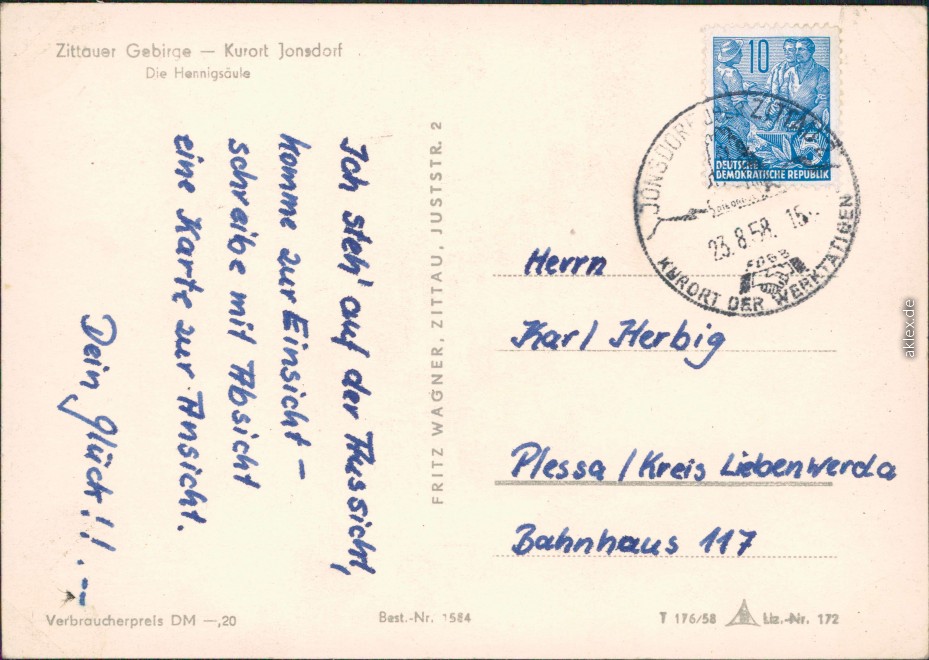 Zittauer Gebirge — Kurort Jonsdorf
Die Hennigsäule
Ich steh' auf der Aussicht,
komme zur Einsicht –
schreibe mit Absicht
eine Karte zur Ansicht.
Dein Glück!!.–
FRITZ WAGNER, ZITTAU, JUSTSTR. 2
10
DEUTSCHE
DEMOKRATISCHE REPUBLIK
JONSDORF
ZITTAU
23.8.58. 15
FDGB
KURORT DER WERKTÄTIGEN
Herrn
Karl Herbig
Plessa / Kreis Liebenwerda
Bahnhaus 117
Verbraucherpreis DM —,20
Best.-Nr. 1584
T 176/58
Liz.-Nr. 172
aklex.de